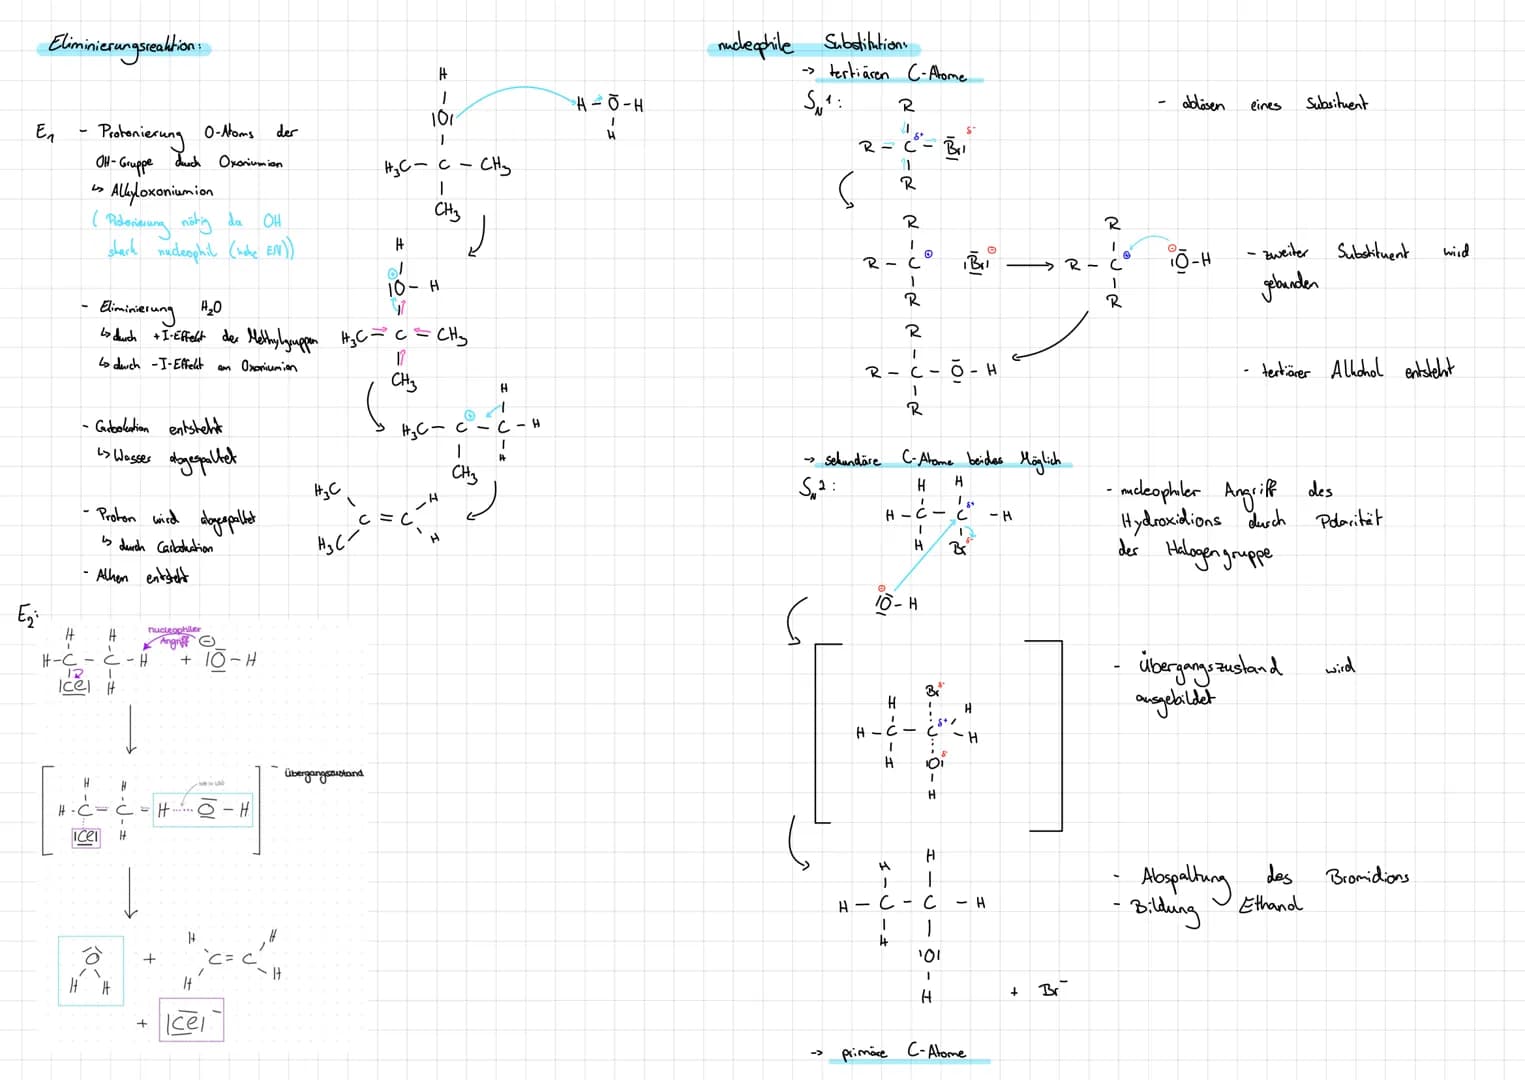 Eliminierungsreaktion:
E1 - Protonierung O-Atoms der
OH-Gruppe durch Oxoniumion
↳ Alkyloxoniumion
( Protonierung nötig da OH
stark nucleophil (hohe EN))
- Eliminierung H2O
↳ durch +I-Effekt der Methylgruppen
↳ durch -I-Effekt am Oxoniumion
- Carbokation entsteht
↳ Wasser abgespaltet
- Proton wird abgespaltet
↳ durch Carbokation
- Alken entsteht
H
|O|
H3C - C - CH3
CH3
H - O - H
H
H
⊕
|O - H
H3C - C - CH3
CH3
H
⊕
H3C - C - C - H
CH3 H
H3C H
C = C
H3C H
E2:
nucleophiler
Angriff
H H
H-C - C - H + |O - H
|Cl| H
⊖
Übergangszustand
H H
H - C = C = H ...... O - H
|Cl| H
O
H H
+
H H
C = C
H H
+ |Cl| -
nucleophile Substitution:
-> tertiären C-Atome
SN1:
R
R - C - Br|
R
δ+ δ-
- ablösen eines Subsituent
R
R - C ⊕ |Br| ⊖
R
R
R - C ⊕ |O - H ⊖
R
- zweiter Substituent wird
gebunden
R
R - C - O - H
R
- tertiärer Alkohol entsteht
-> sekundäre C-Atome beides Möglich
SN2:
H H
H - C - C - H
H Br
δ+ δ-
⊖
|O - H
- nucleophiler Angriff des
Hydroxidions durch Polarität
der Halogengruppe
Br δ-
H H
H - C - C δ+ - H
H |O| δ-
H
- Übergangszustand wird
ausgebildet
H H
H - C - C - H
H |O|
H
+ Br-
- Abspaltung des Bromidions
- Bildung Ethanol
-> primäre C-Atome